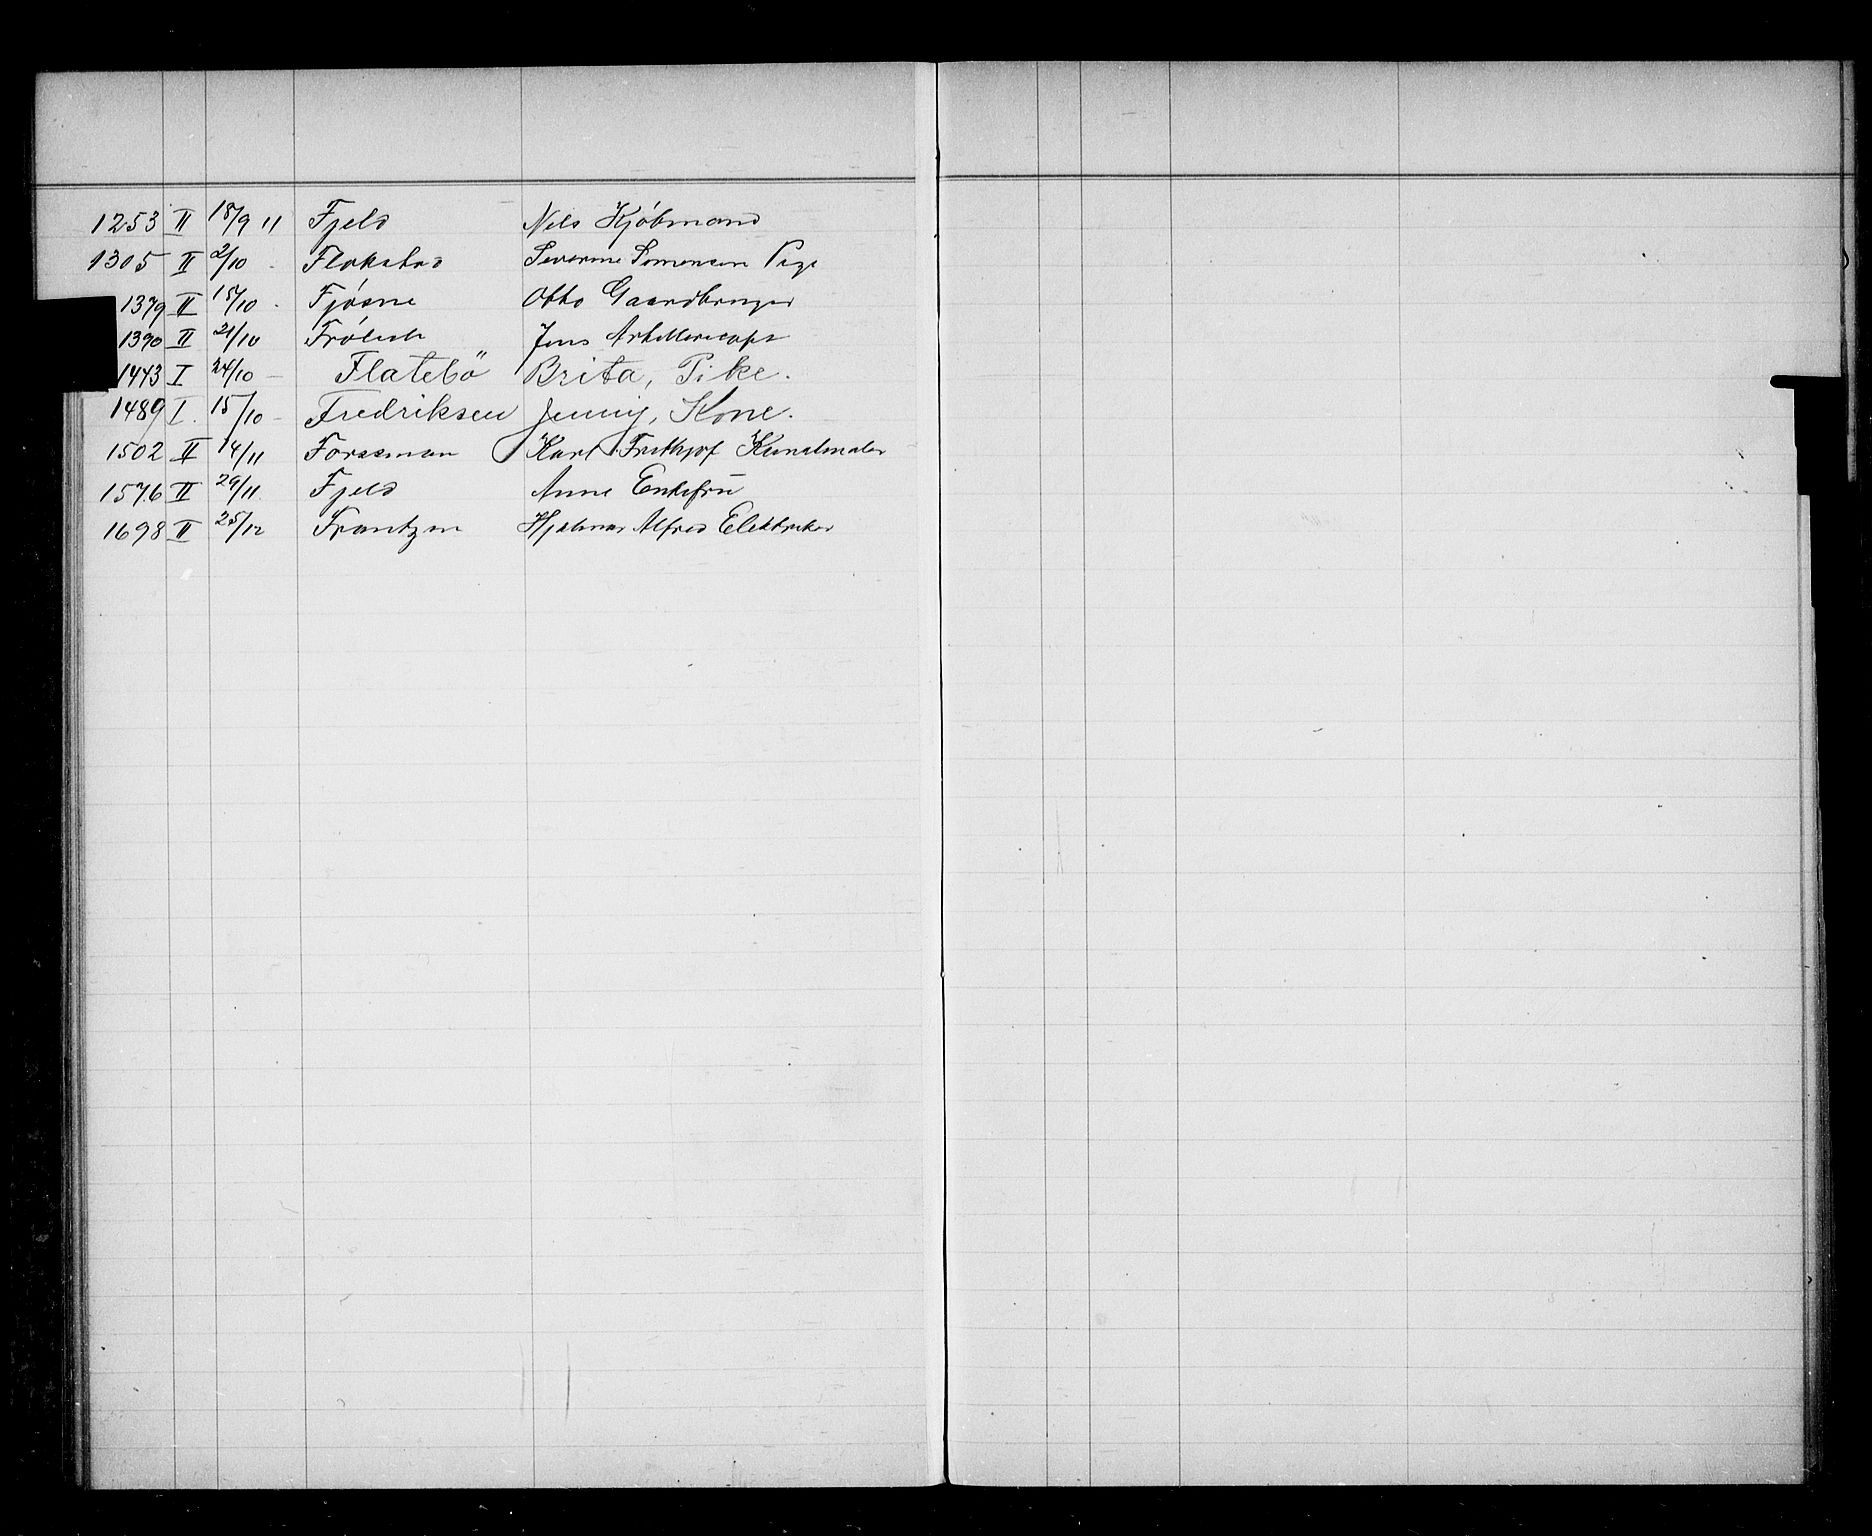 1253 II 18/9 11 Fjeld Nils Kjöbmand
1305 II 2/10 - Flokstad Severine Pige
1379 II 15/10 - Fjösne Otto Gaardbruger
1390 II 21/10 Frölich Jens Artillericapt
1443 I 24/10 — Flatebö Brita, Pike.
1489 I. 15/10 - Fredriksen Jenny, Kone.
1502 II 14/11 Forssman Karl Frithjof Kunstmaler
1576 II 29/11 Fjeld Anne Enkefru
1698 II 25/12 Frantzen Hjalmar Alfred Elektriker